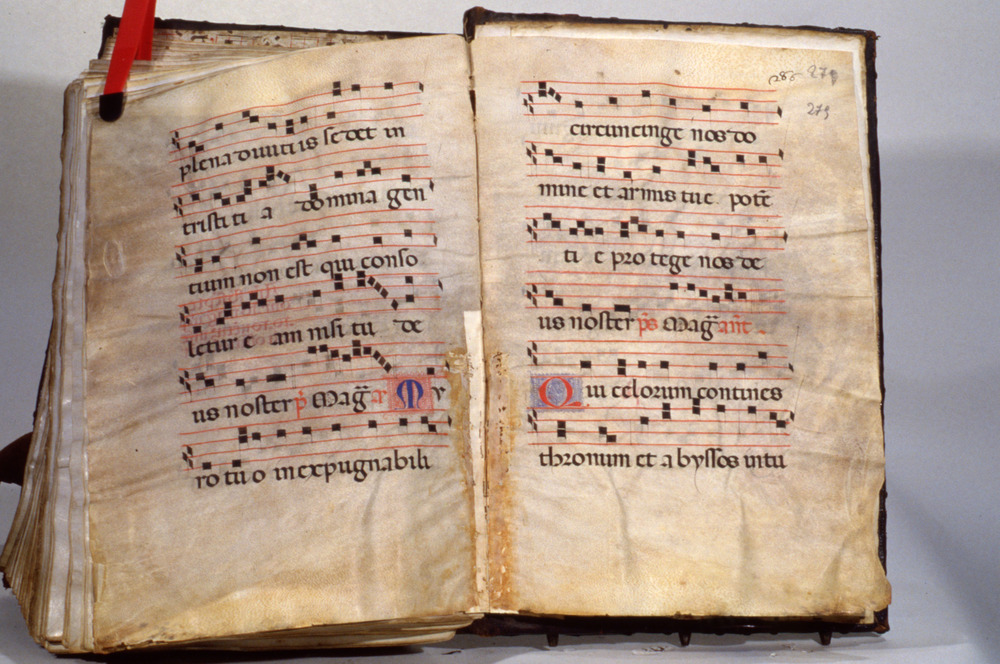 plena diviti is se det in
tristi ti a do mina gen
tium non est qui conso
letur e am nisi tu de
us noster p̄s Mag̅ ar̄ M y
ro tu o inexpugnabili
279
279
circuncinge nos do
mine et armis tue potē
ti e pro tege nos de
us noster p̄s Mag̅ ant̄
Q ui celorum contines
thronum et a byssos intu